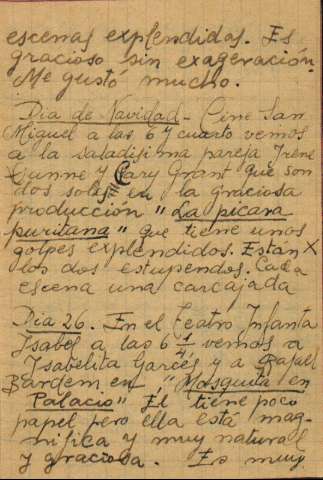 escenas explendidas. Es
gracioso sin exageración.
Me gustó mucho.
Dia de Navidad - Cine San
Miguel a las 6 y cuarto vemos
a la saladisima pareja Irene
Dunne y Cary Grant que son
dos soles en la graciosa
producción "La picara
puritana" que tiene unos
golpes explendidos. Están
los dos estupendos. Cada
escena una carcajada
Dia 26. En el Teatro Infanta
Isabel a las 6 1/4 vemos a
Isabelita Garcés y a Rafael
Bardem en "Mosquita en
Palacio" El tiene poco
papel pero ella está mag-
nifica y muy natural
y graciosa. Es muy